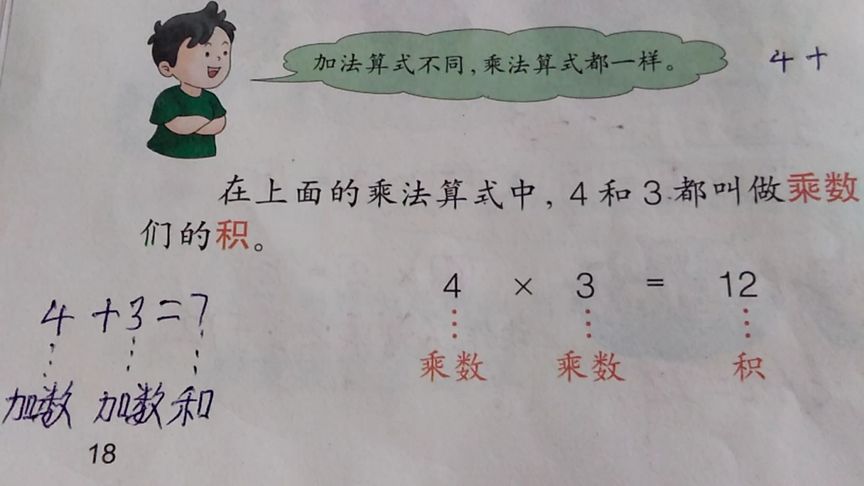 加法算式不同，乘法算式都一样。
4 +
在上面的乘法算式中，4 和 3 都叫做乘数
们的积。
4 × 3 = 12
乘数 乘数 积
4 + 3 = 7
加数 加数 和
18